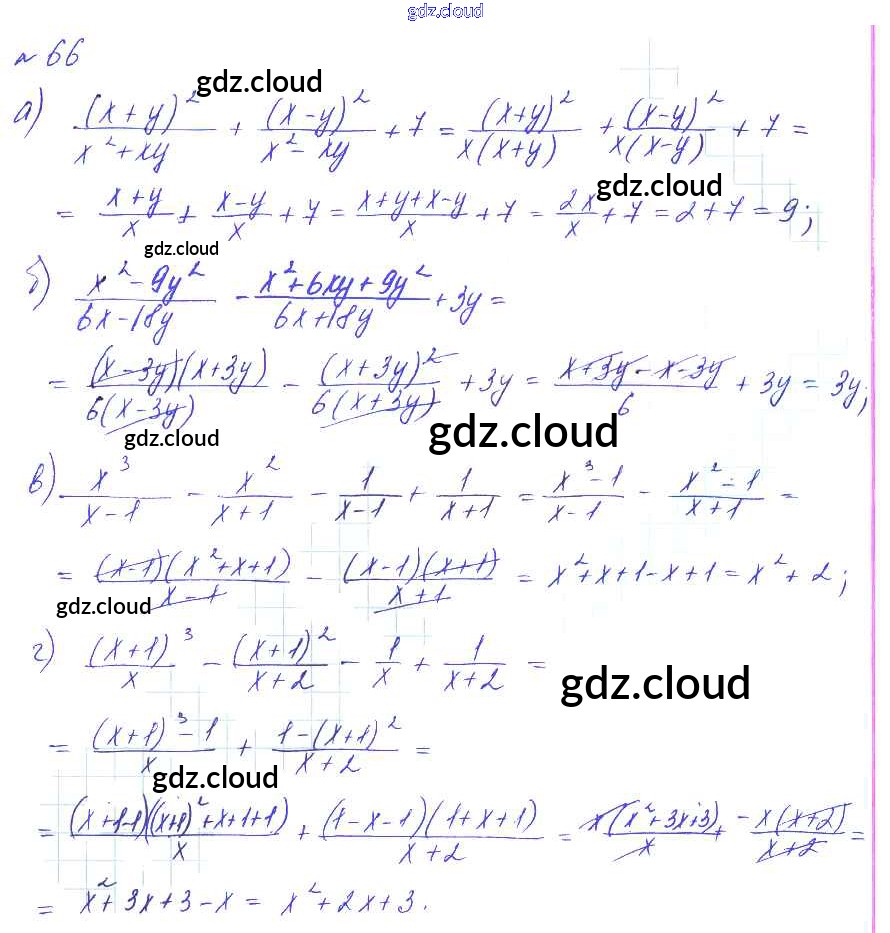 gdz.cloud
№ 66
gdz.cloud
а) (x+y)²/(x²+xy) + (x-y)²/(x²-xy) + 7 = (x+y)²/(x(x+y)) + (x-y)²/(x(x-y)) + 7 =
gdz.cloud
= (x+y)/x + (x-y)/x + 7 = (x+y+x-y)/x + 7 = 2x/x + 7 = 2+7 = 9;
gdz.cloud
б) (x²-9y²)/(6x-18y) - (x²+6xy+9y²)/(6x+18y) + 3y =
= (x-3y)(x+3y)/(6(x-3y)) - (x+3y)²/(6(x+3y)) + 3y = (x+3y-x-3y)/6 + 3y = 3y;
gdz.cloud
gdz.cloud
в) x³/(x-1) - x²/(x+1) - 1/(x-1) + 1/(x+1) = (x³-1)/(x-1) - (x²-1)/(x+1) =
= (x-1)(x²+x+1)/(x-1) - (x-1)(x+1)/(x+1) = x²+x+1-x+1 = x²+2;
gdz.cloud
г) (x+1)³/x - (x+1)²/(x+2) - 1/x + 1/(x+2) =
gdz.cloud
= ((x+1)³-1)/x + (1-(x+1)²)/(x+2) =
gdz.cloud
= (x+1-1)((x+1)²+x+1+1)/x + (1-x-1)(1+x+1)/(x+2) = x(x²+3x+3)/x + -x(x+2)/(x+2) =
= x²+3x+3-x = x²+2x+3.